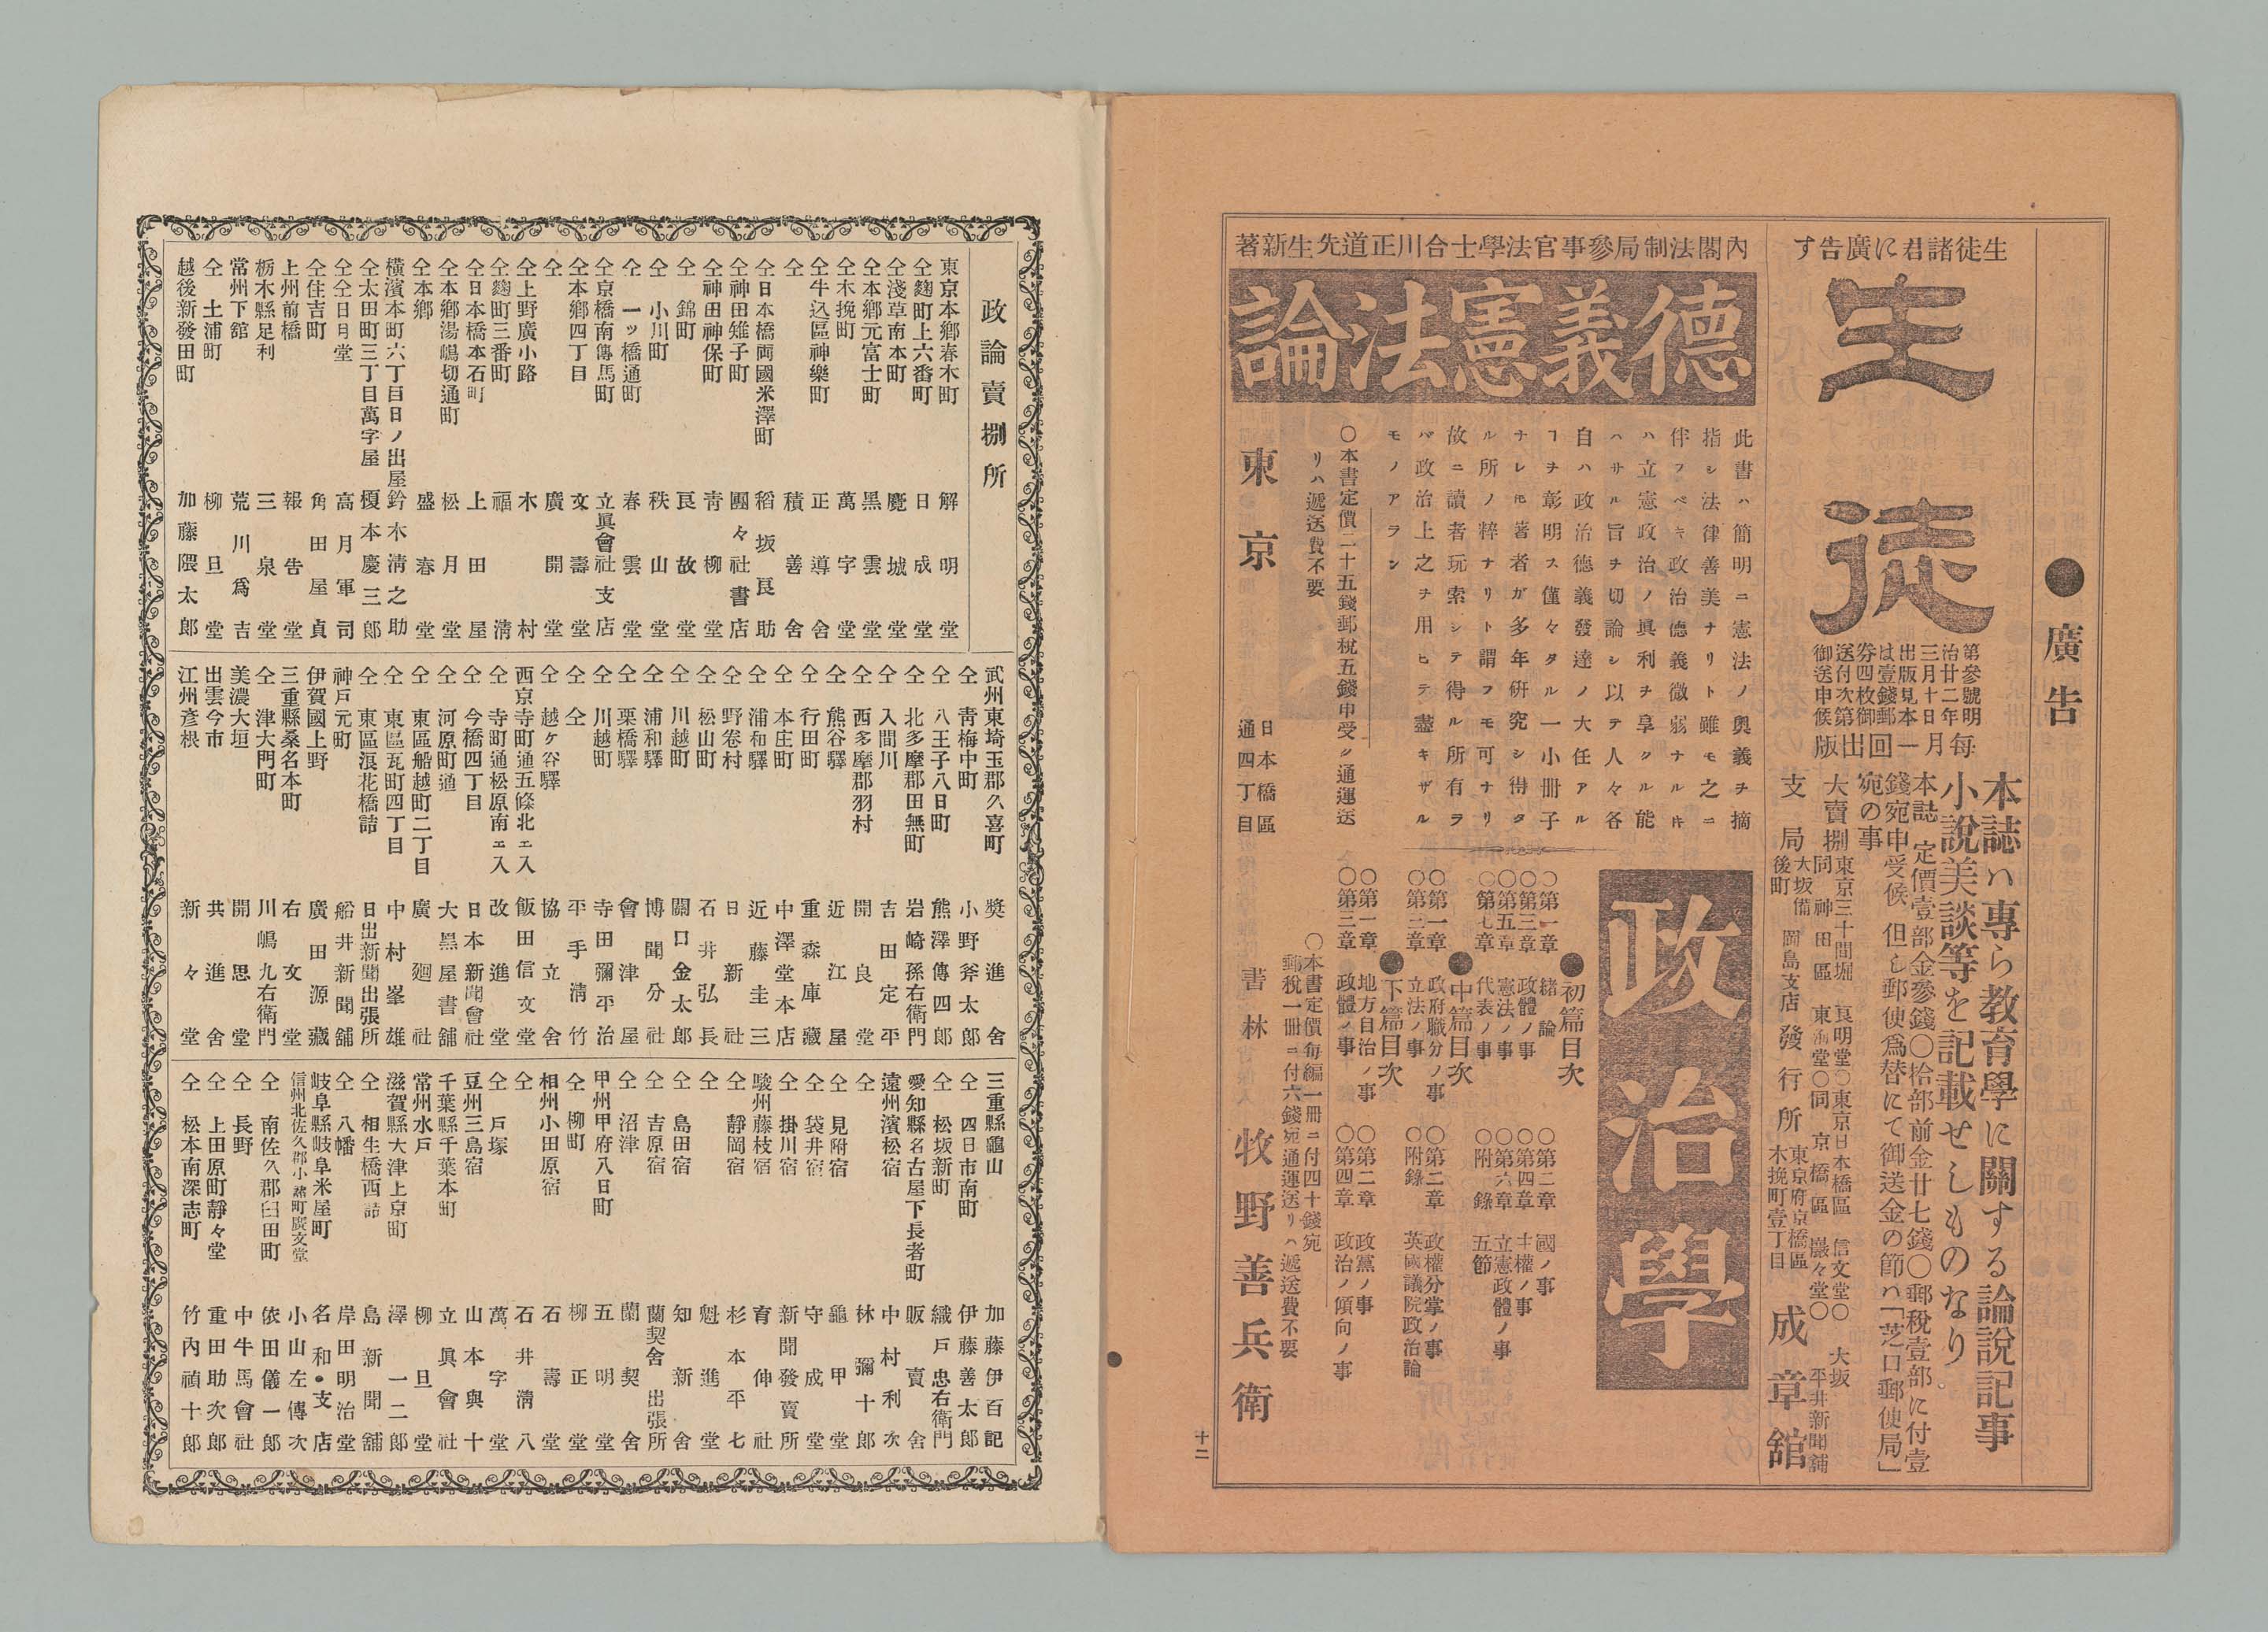 ●廣告
生徒諸君に廣告す
生徒
第參號明
治廿二年每
三月十日月
出版見本一
は壹錢郵回
券四枚御出
送付次第版
御送申候
本誌ハ專ら教育學に關する論說記事
小說美談等を記載せしものなり
本誌定價壹部金參錢〇拾部前金廿七錢〇郵稅壹部に付壹
錢宛申受候但し郵便爲替にて御送金の節ハ「芝口郵便局」
宛の事
大賣捌
東京三十間堀 良明堂〇東京日本橋區 信文堂〇大坂
同神田區 東海堂〇同京橋區 巖々堂〇平井新聞舖
支局
大坂備
後町
岡島支店
發行所
東京府京橋區
木挽町壹丁目
成章舘
內閣法制局參事官法學士合川正道先生新著
德義憲法論
此書ハ簡明ニ憲法ノ奧義ヲ摘
指シ法律善美ナリト雖モ之ニ
伴フベキ政治德義微弱ナルㇳキ
ハ立憲政治ノ眞利ヲ享クル能
ハサル旨ヲ切論シ以テ人々各
自ハ政治德義發達ノ大任アル
ヿヲ彰明ス僅々タル一小册子
ナレ𪜈著者ガ多年硏究シ得タ
ル所ノ粹ナリト謂フモ可ナリ
故ニ讀者玩索シテ得ル所有ラ
バ政治上之ヲ用ヒテ盡キザル
モノアラン
〇本書定價二十五錢郵稅五錢申受ク通運送
リハ遞送費不要
政治學
●初篇目次
〇第一章 緖論 〇第二章 國ノ事
〇第三章 政體ノ事 〇第四章 主權ノ事
〇第五章 憲法ノ事 〇第六章 立憲政體ノ事
〇第七章 代表ノ事 〇附錄 五節
●中篇目次
〇第一章 政府職分ノ事 〇第二章 政權分掌ノ事
〇第三章 立法ノ事 〇附錄 英國議院政治論
●下篇目次
〇第一章 地方自治ノ事 〇第二章 政黨ノ事
〇第三章 政體ノ事 〇第四章 政治ノ傾向ノ事
〇本書定價每編一冊ニ付四十錢宛
郵稅一冊ニ付六錢宛通運送リハ遞送費不要
東京
日本橋區
通四丁目
書林
牧野善兵衛
十二
政論賣捌所
東京本鄕春木町 解明堂
仝麴町上六番町 日成堂
仝淺草南本町 慶城堂
仝本鄕元富士町 黑雲堂
仝木挽町 萬字堂
仝牛込區神樂町 正導舍
仝 積善舍
仝日本橋兩國米澤町 稻坂良助
仝神田雉子町 團々社書店
仝神田神保町 靑柳堂
仝 錦町 良故堂
仝 小川町 秩山堂
仝 一ッ橋通町 春雲堂
仝京橋南傳馬町 立眞會社支店
仝本鄕四丁目 文壽堂
仝 廣開堂
仝上野廣小路 木村
仝麴町三番町 福淸
仝日本橋本石町 上田屋
仝本鄕湯嶋切通町 松月堂
仝本鄕 盛春堂
橫濱本町六丁目日ノ出屋 鈴木淸之助
仝太田町三丁目萬字屋 榎本慶三郞
仝仝日月堂 高月軍司
仝住吉町 角田屋貞
上州前橋 報告堂
栃木縣足利 三泉堂
常州下舘 荒川爲吉
仝 土浦町 柳旦堂
越後新發田町 加藤隈太郞
武州東埼玉郡久喜町 奬進舍
仝 靑梅中町 小野斧太郞
仝 八王子八日町 熊澤傳四郞
仝 北多摩郡田無町 岩崎孫右衛門
仝 入間川 吉田定平
仝 西多摩郡羽村 開良堂
仝 熊谷驛 近江屋
仝 行田町 重森庫藏
仝 本庄町 中澤堂本店
仝 浦和驛 近藤圭三
仝 野卷村 日新社
仝 松山町 石井弘長
仝 川越町 關口金太郞
仝 浦和驛 博聞分社
仝 栗橋驛 會津屋
仝 川越町 寺田彌平治
仝 仝 平手淸竹
仝 越ケ谷驛 協立舍
西京寺町通五條北ェ入 飯田信文堂
仝 寺町通松原南ェ入 改進堂
仝 今橋四丁目 日本新聞會社
仝 河原町通 大黑屋書舖
仝 東區船越町二丁目 廣廻社
仝 東區瓦町四丁目 中村峯雄
仝 東區浪花橋詰 日出新聞出張所
神戶元町 船井新聞舖
伊賀國上野 廣田源藏
三重縣桑名本町 右文堂
仝 津大門町 川嶋九右衛門
美濃大垣 開思舍
出雲今市 共進舍
江州彥根 新々堂
三重縣龜山 加藤伊百記
仝 四日市南町 伊藤善太郞
仝 松坂新町 織戶忠右衛門
愛知縣名古屋下長者町 販賣舍
遠州濱松宿 中村利次
仝 林彌十郞
仝 見附宿 龜甲堂
仝 袋井宿 守成堂
仝 掛川宿 新聞發賣所
駿州藤枝宿 育伸社
仝 靜岡宿 杉本平七
仝 魁進堂
仝 島田宿 知新舍
仝 吉原宿 蘭契舍出張所
仝 沼津 蘭契舍
甲州甲府八日町 五明堂
仝 柳町 柳正堂
相州小田原宿 石壽堂
仝 石井淸八
仝 戶塚 萬字堂
豆州三島宿 山本與十
千葉縣千葉本町 立眞會社
常州水戶 柳旦堂
滋賀縣大津上京町 澤一二郞
仝 相生橋西詰 島新聞舖
仝 八幡 岸田明治堂
岐阜縣岐阜米屋町 名和●支店
信州北佐久郡小諸町廣文堂 小山左傳次
仝 南佐久郡臼田町 依田儀一郞
仝 長野 中牛馬會社
仝 上田原町靜々堂 重田助次郞
仝 松本南深志町 竹內禎十郞